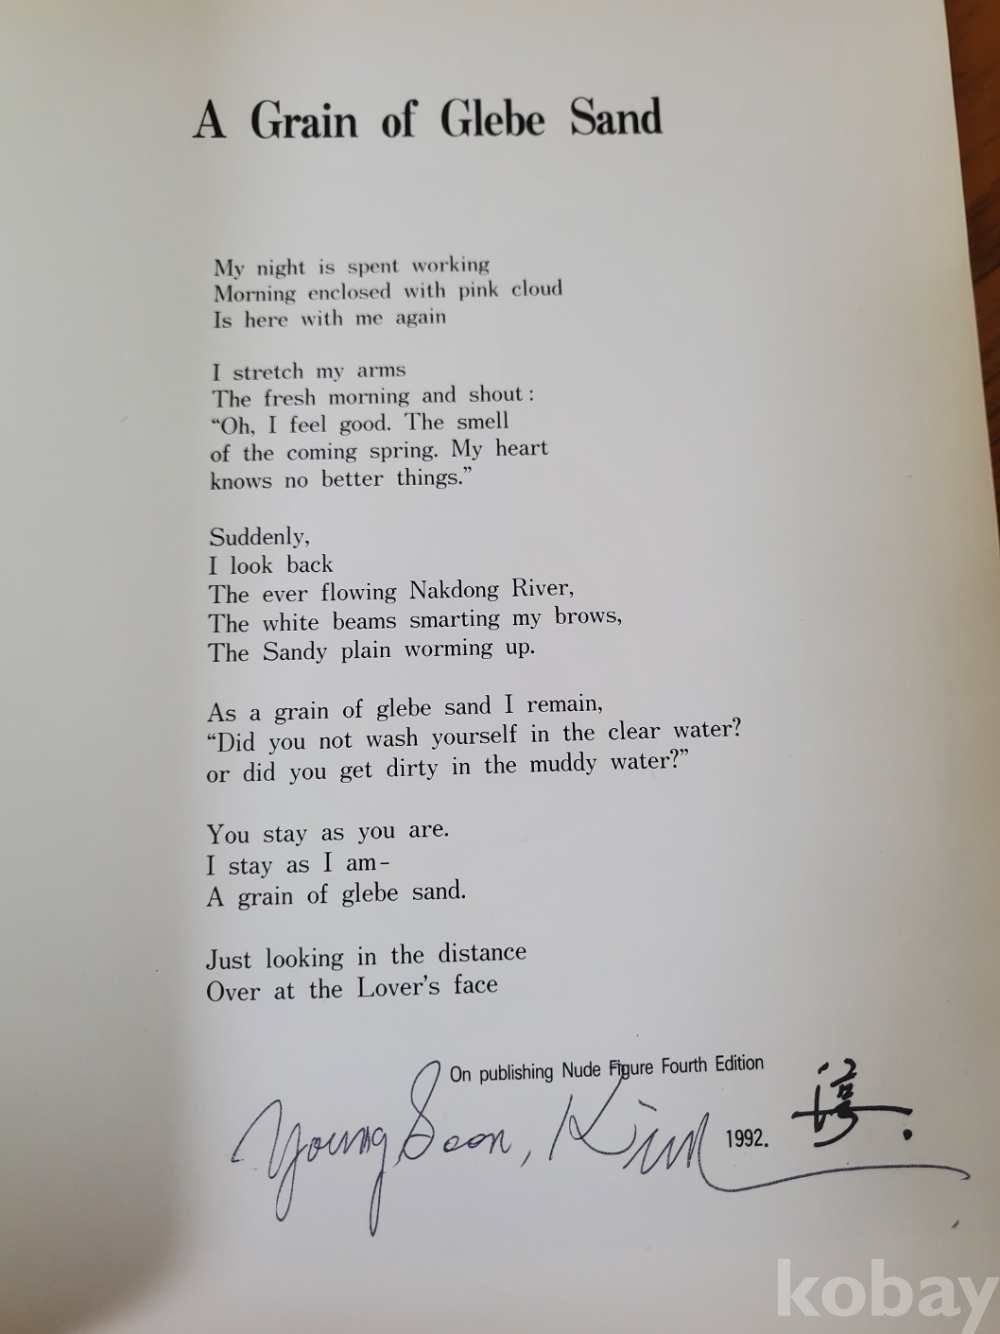 A Grain of Glebe Sand
My night is spent working
Morning enclosed with pink cloud
Is here with me again
I stretch my arms
The fresh morning and shout :
“Oh, I feel good. The smell
of the coming spring. My heart
knows no better things.”
Suddenly,
I look back
The ever flowing Nakdong River,
The white beams smarting my brows,
The Sandy plain worming up.
As a grain of glebe sand I remain,
“Did you not wash yourself in the clear water?
or did you get dirty in the muddy water?”
You stay as you are.
I stay as I am-
A grain of glebe sand.
Just looking in the distance
Over at the Lover’s face
On publishing Nude Figure Fourth Edition
Young Soon, Kim 1992.
kobay